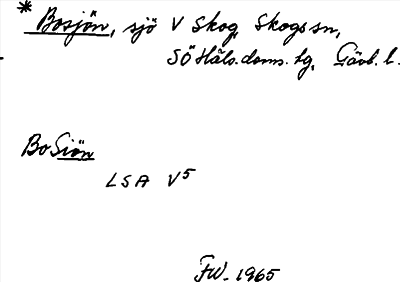 * Bosjön, sjö V Skog, Skogs sn,
SÖ Häls. doms. tg, Gävl. l.
BoSiön
LSA V5
FW. 1965